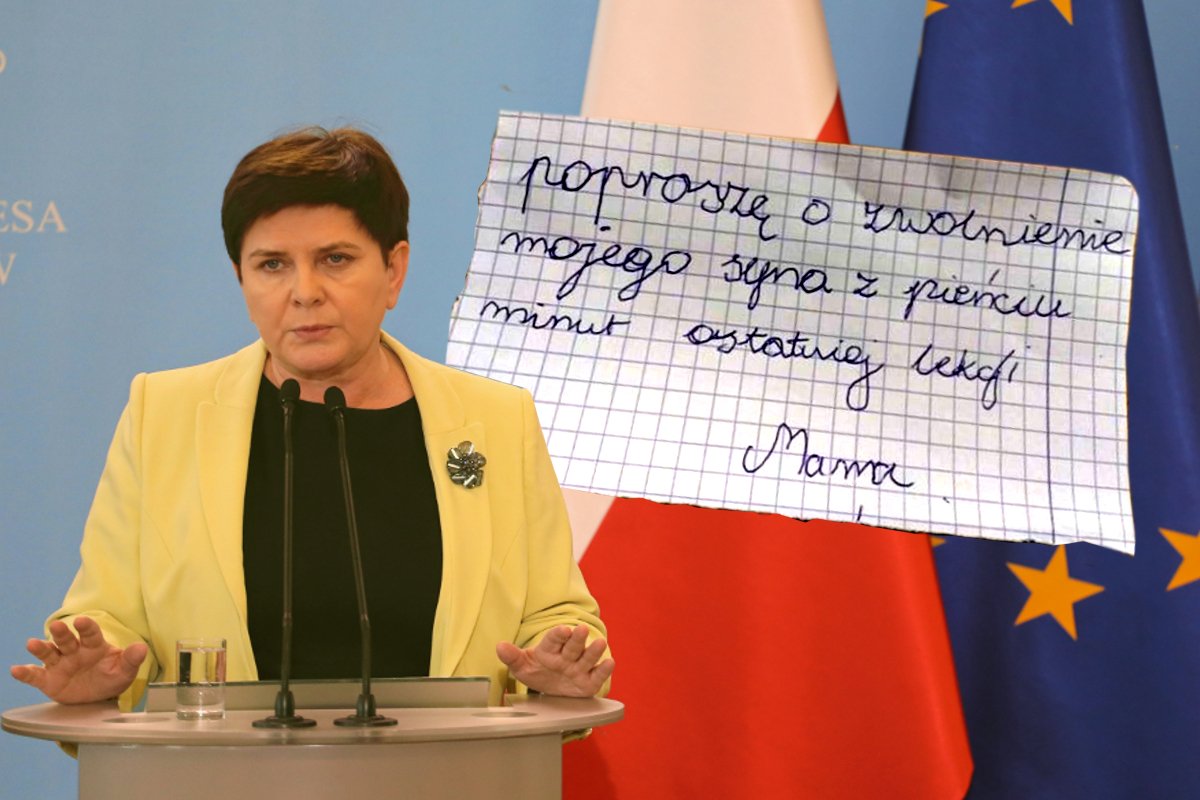 ESA
W
poproszę o zwolnienie
mojego syna z pięńciu
minut ostatniej lekcji
Mama